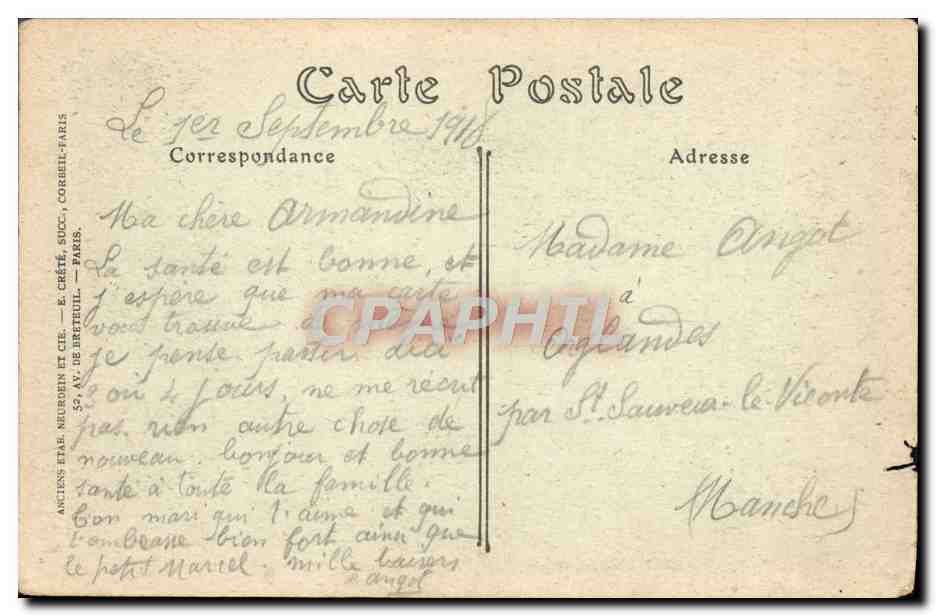 Carte Postale
Le 1er Septembre 1916
Correspondance
Ma chère Armandine
La santé est bonne, et
j'espère que ma carte
vous trouve de
je pense partir dici
2 ou 4 jours, ne me récrit
pas. rien autre chose de
nouveau. bonjour et bonne
santé à toute la famille.
Ton mari qui t'aime et qui
t'ombrasse bien fort ainsi que
le petit Marcel. mille baisers
angot
Adresse
Madame Angot
à
Orglandes
par St. Sauveur-le-Vicomte
(Manche)
ANCIENS ETAB. NEURDEIN ET CIE. — E. CRÉTÉ, SUCC., CORBEIL-PARIS
52, AV. DE BRETEUIL. — PARIS.
CPAPHIL